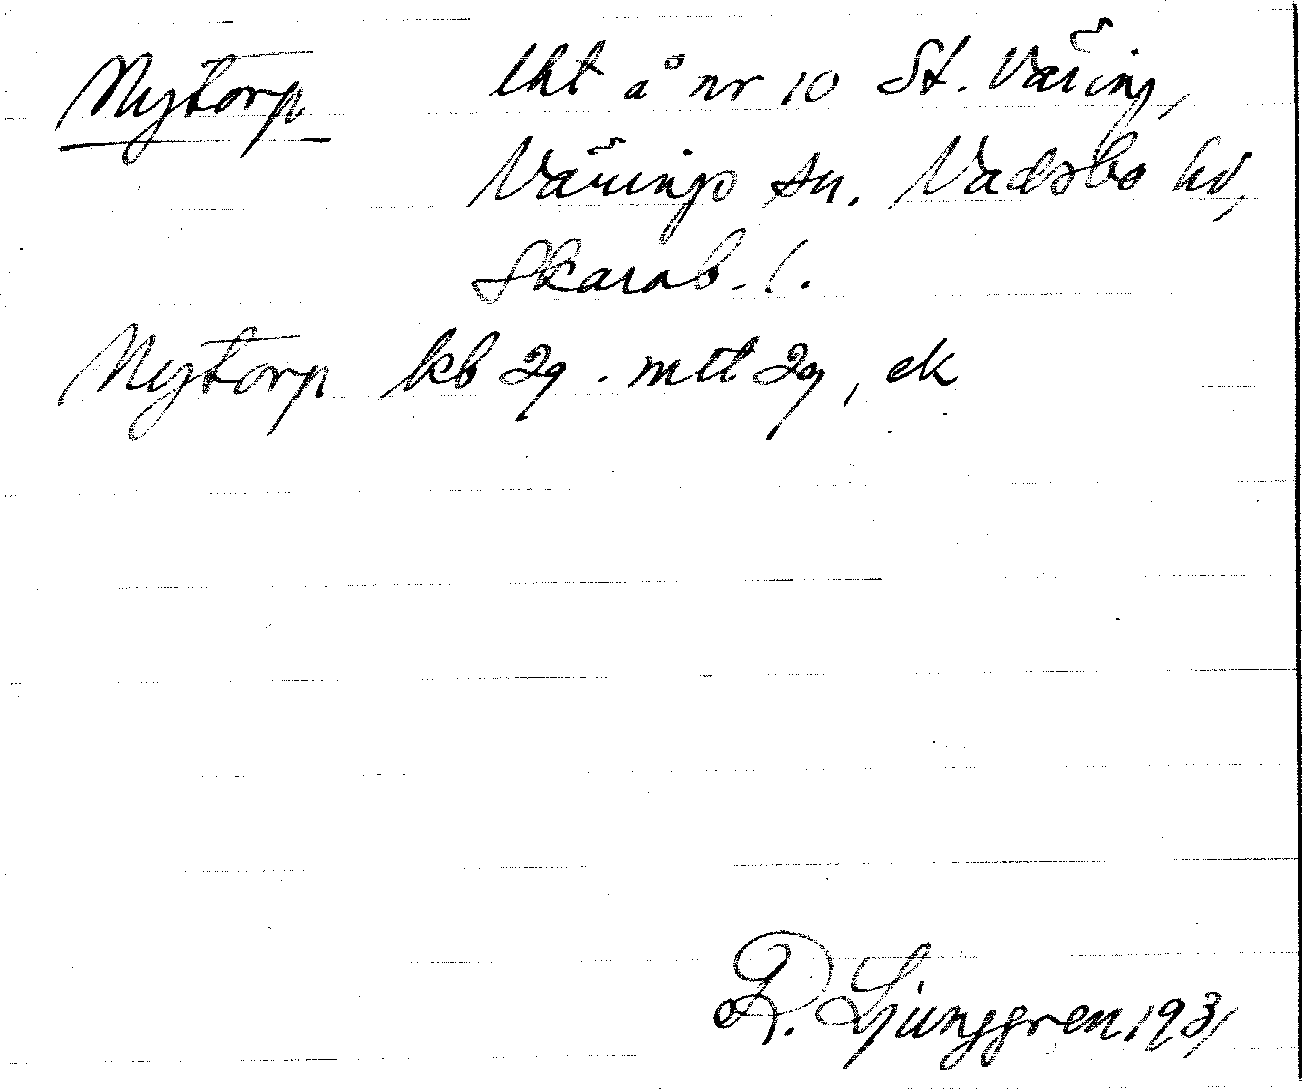 Nytorp lht å nr 10 St. Väring,
Värings sn. Vadsbo hd,
Skarab. l.
Nytorp kb 29. mtt 29, ek
R. Ljunggren 1931